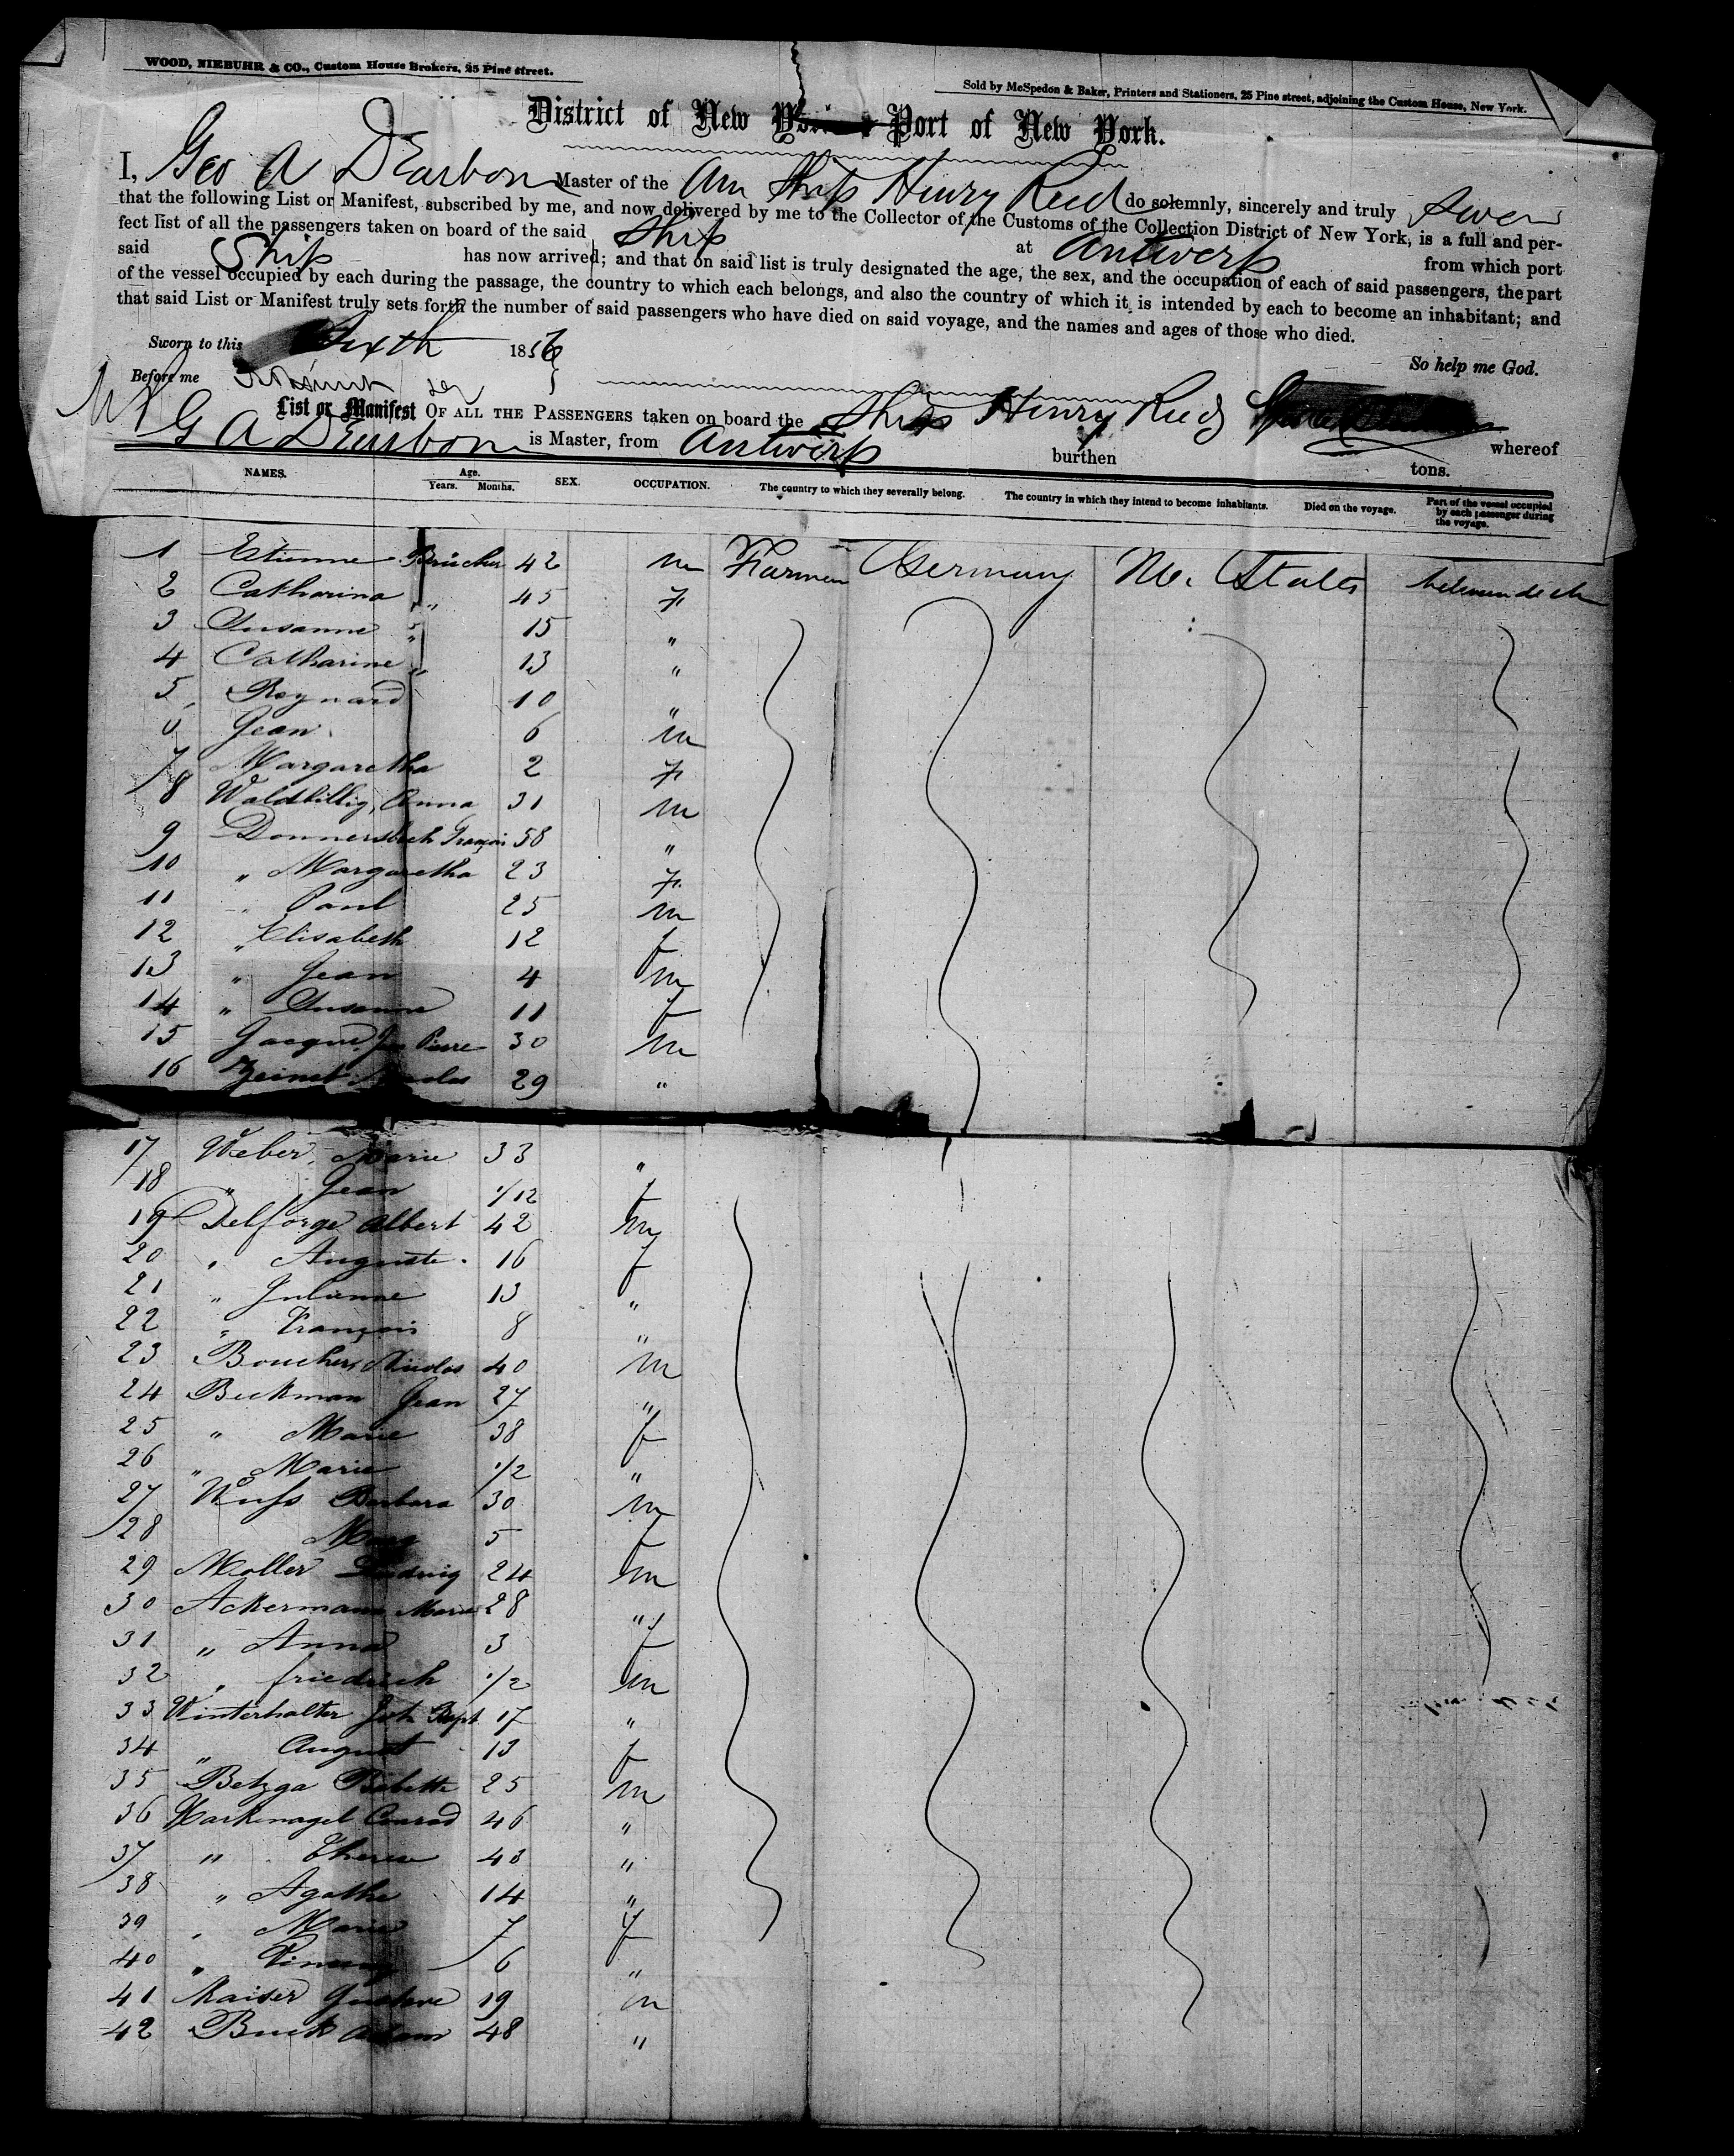 WOOD, NIEBUHR & CO., Custom House Brokers, 25 Pine street.
Sold by McSpedon & Baker, Printers and Stationers, 25 Pine street, adjoining the Custom House, New York.
District of New York Port of New York.
I, Geo A DEarbon Master of the Am Ship Henry Reed do solemnly, sincerely and truly Swear
that the following List or Manifest, subscribed by me, and now delivered by me to the Collector of the Customs of the Collection District of New York, is a full and per-
fect list of all the passengers taken on board of the said Ship at Antwerp from which port
said Ship has now arrived; and that on said list is truly designated the age, the sex, and the occupation of each of said passengers, the part
of the vessel occupied by each during the passage, the country to which each belongs, and also the country of which it is intended by each to become an inhabitant; and
that said List or Manifest truly sets forth the number of said passengers who have died on said voyage, and the names and ages of those who died.
Sworn to this Sixth 1856
So help me God.
Before me
List or Manifest OF ALL THE PASSENGERS taken on board the Ship Henry Reed whereof
G A DEarbon is Master, from Antwerp burthen tons.
NAMES. Age. Years. Months. SEX. OCCUPATION. The country to which they severally belong. The country in which they intend to become inhabitants. Died on the voyage. Part of the vessel occupied by each passenger during the voyage.
1 Etienne 42 m Farmer Germany States
2 Catharina " 45 f
3 Susanne " 15 "
4 Catharine " 13 "
5 Reynard 10 "
6 Jean 6 m
7 Margaretha 2 f
8 Waldbillig, Anna 31 m
9 Donnersbach François 58 "
10 " Margaretha 23 f
11 " Paul 25 m
12 " Elisabeth 12 f
13 " Jean 4 m
14 " Susanne 11 f
15 Jacque Jean Pierre 30 m
16 Nicolas 29 "
17 Weber, Marie 33 "
18 " Jean 1/12 f
19 Delforge Albert 42 m
20 " Auguste 16 f
21 " Julianne 13 "
22 " François 8 "
23 Boucher, Nicolas 40 m
24 Beckman Jean 27 "
25 " Marie 38 f
26 " Marie 1/2 "
27 Barbara 30 m
28 5 f
29 Moller Ludwig 24 m
30 Ackermann Marie 28 "
31 " Anna 3 f
32 " friedrich 1/2 m
33 Winterhalter Joh Bapt 17 "
34 " August 13 f
35 Betzga Babette 25 m
36 Harknagel Conrad 46 "
37 " Therese 43 "
38 " Agatha 14 "
39 " Marie 7 f
40 " 6 "
41 Kaiser Gustave 19 m
42 Buck Adam 48 "